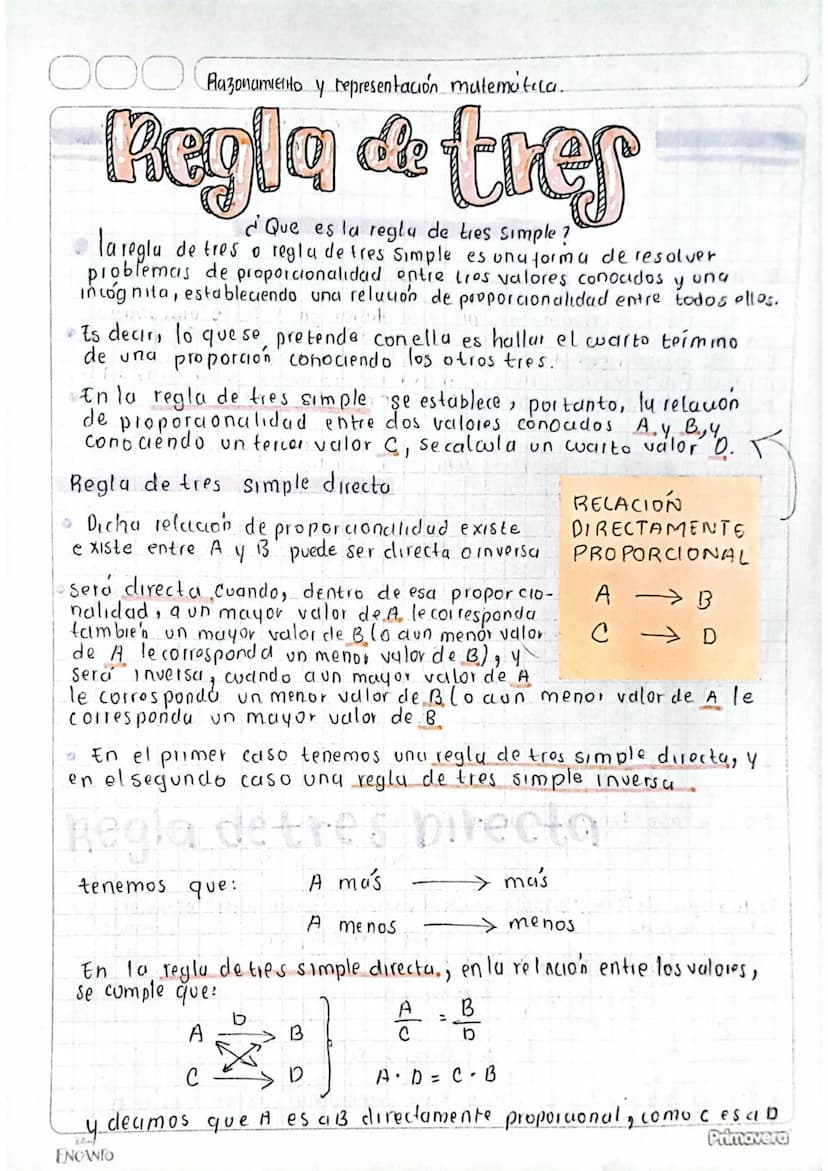 Razonamiento y representación matemática.
Regla de tres
¿Que es la regla de tres simple?
la regla de tres o regla de tres simple es una forma de resolver
problemas de proporcionalidad entre tres valores conocidos y una
incógnita, estableciendo una relación de proporcionalidad entre todos ellos.
Es decir, lo que se pretende con ella es hallar el cuarto término
de una proporción conociendo los otros tres.
En la regla de tres simple se establece, por tanto, la relación
de proporcionalidad entre dos valores conocidos A y B, y
conociendo un tercer valor C, se calcula un cuarto valor D.
Regla de tres simple directa
Dicha relación de proporcionalidad existe
existe entre A y B puede ser directa o inversa
RELACIÓN
DIRECTAMENTE
PROPORCIONAL
A → B
C → D
será directa cuando, dentro de esa proporcio-
nalidad, a un mayor valor de A le corresponda
también un mayor valor de B (o a un menor valor
de A le corresponda un menor valor de B), y
será inversa, cuando a un mayor valor de A
le corresponda un menor valor de B (o a un menor valor de A le
corresponda un mayor valor de B
En el primer caso tenemos una regla de tres simple directa, y
en el segundo caso una regla de tres simple inversa.
Regla de tres Directa
tenemos que: A más → más
A menos → menos
En la regla de tres simple directa, en la relación entre los valores,
se cumple que:
D
A → B
C → D
A/C = B/D
A · D = C · B
y decimos que A es a B directamente proporcional, como C es a D
Primavera
ENCANTO